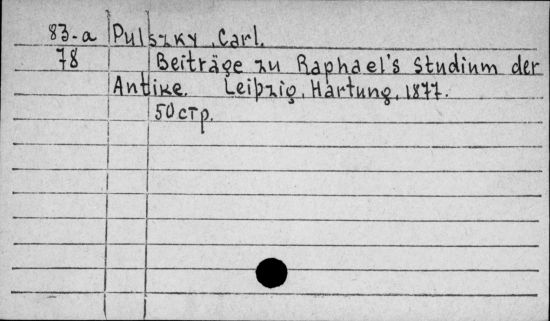 83-a Pulszky, Carl.
78 Beiträge zu Raphael's Studium der
Antike. Leipzig, Hartung, 1877.
50 стр.